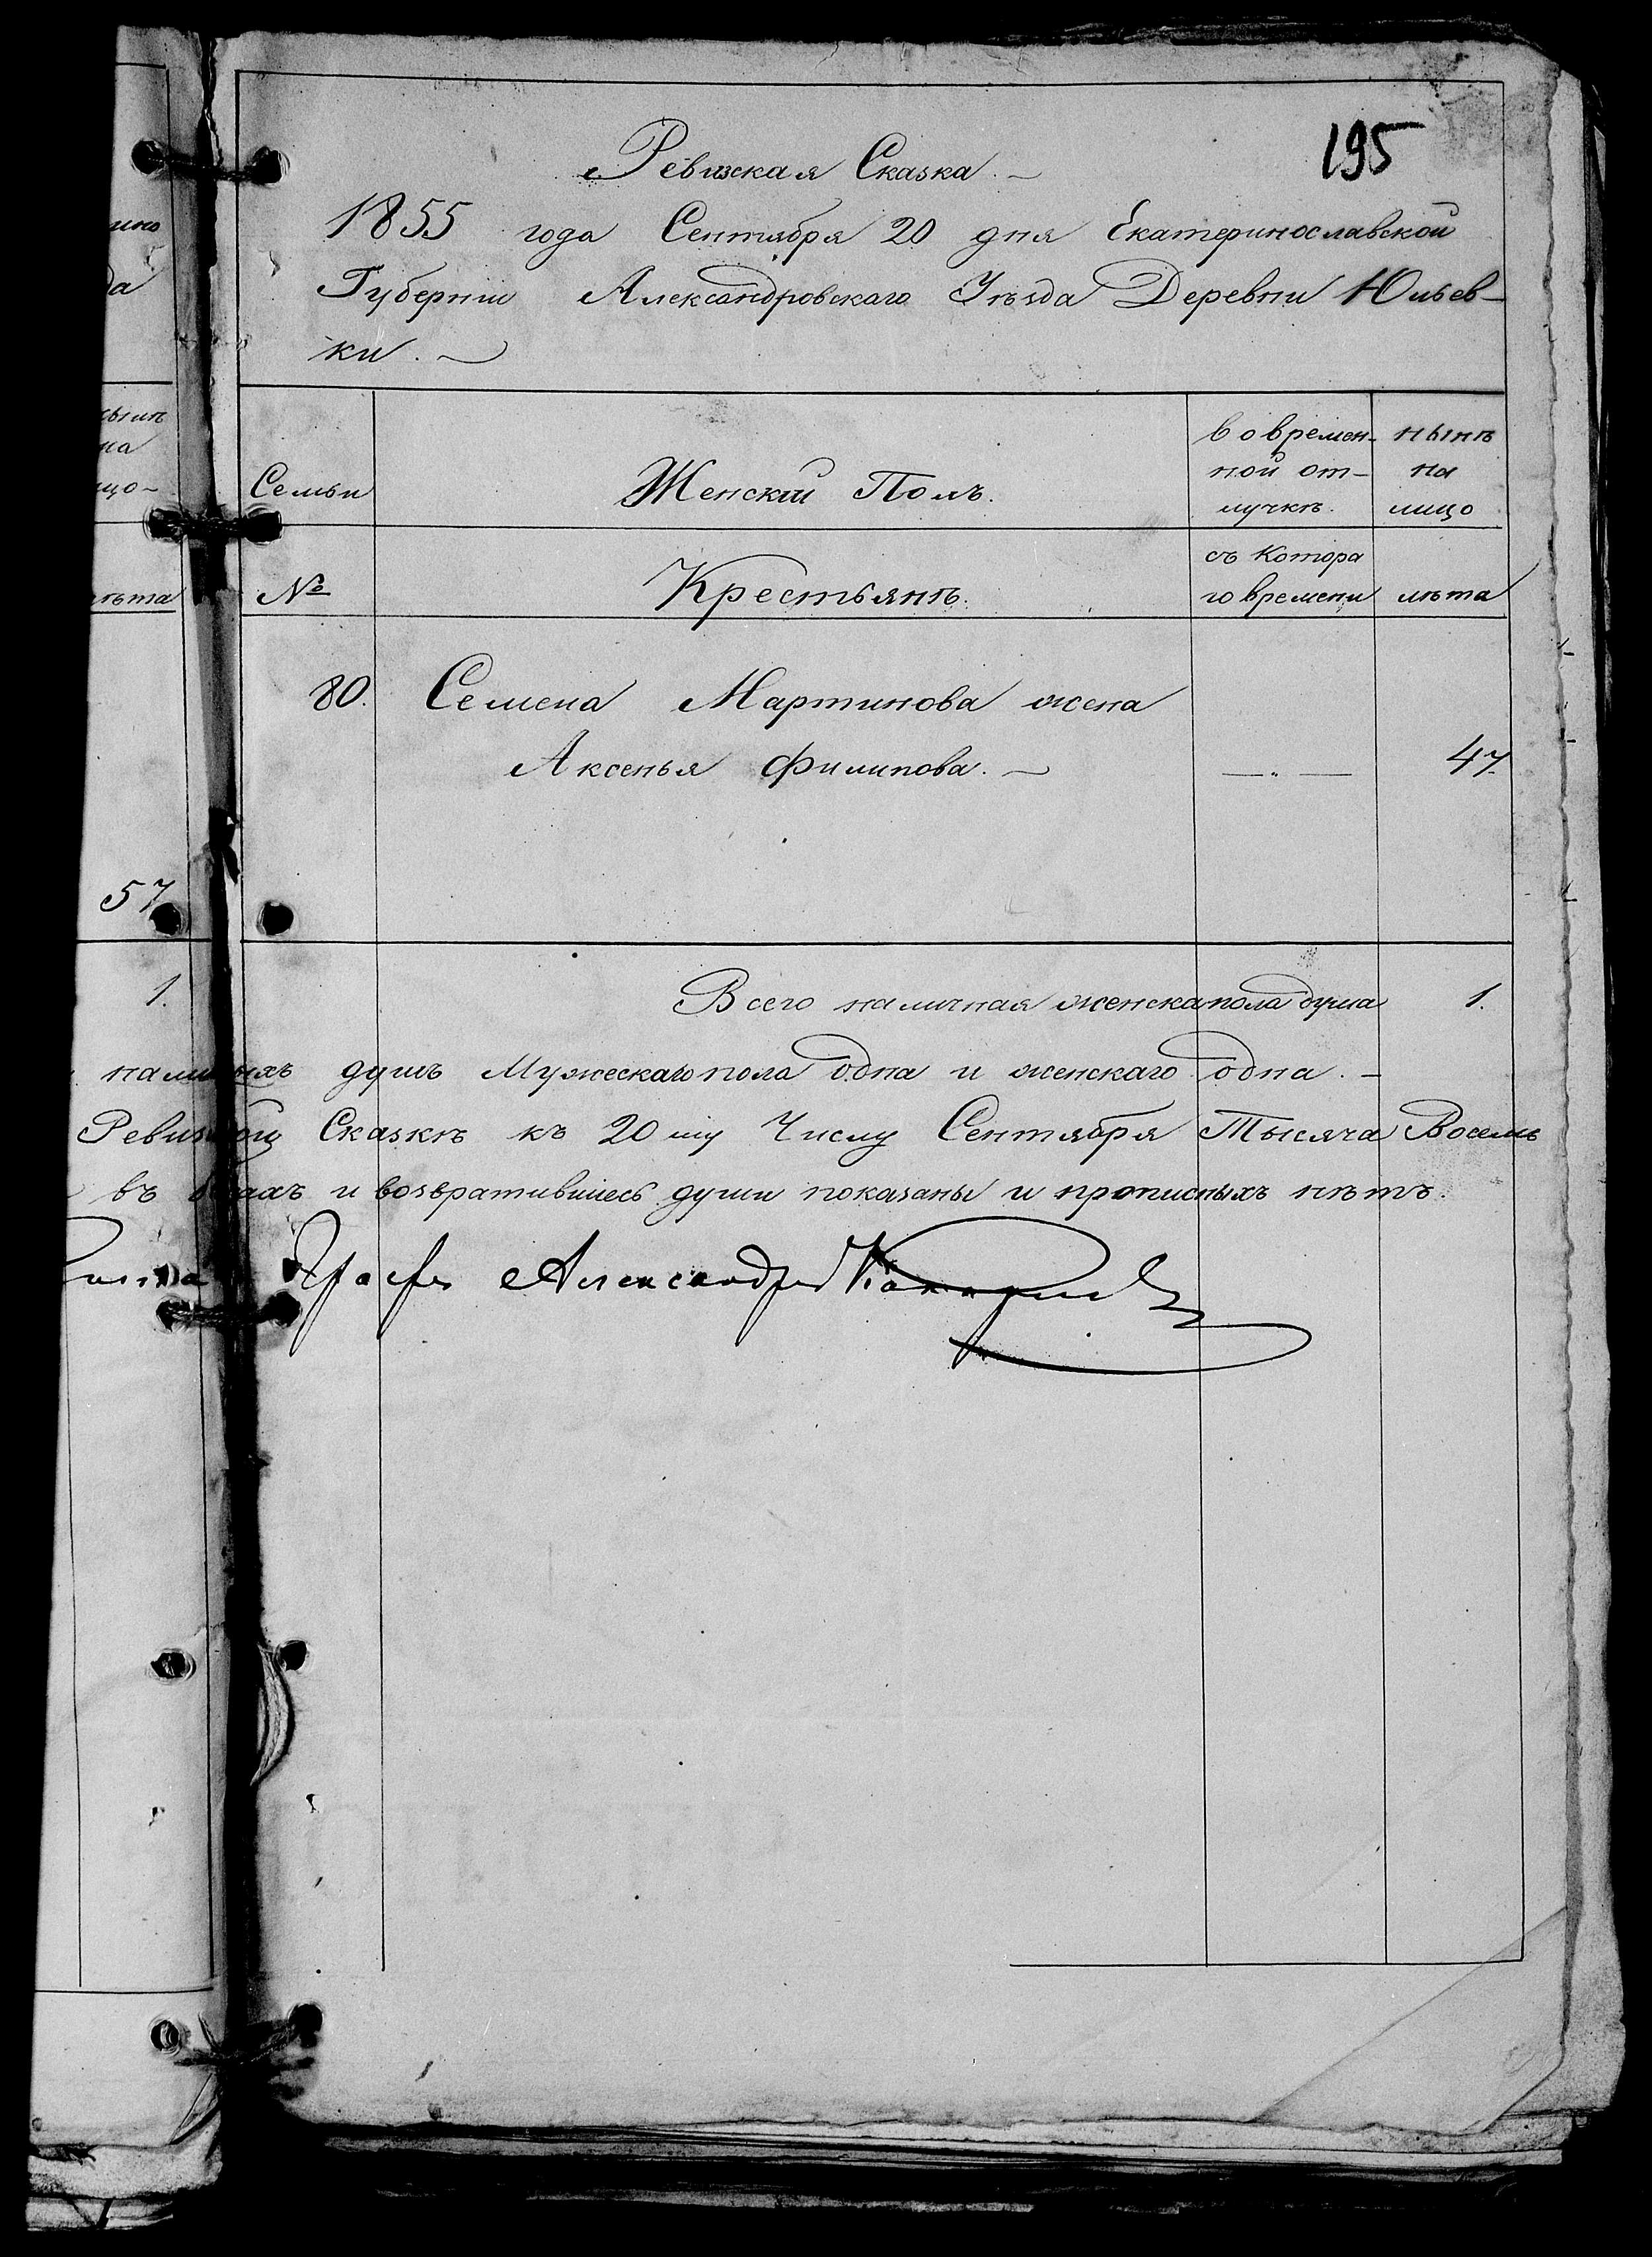 195
Ревизкая Сказка. —
1855 года Сентября 20 дня Екатеринославской
Губернии Александровскаго Уѣзда Деревни Юльев-
ки. —
Семьи
Женскій Полъ.
во времен-
ной от-
лучкѣ.
нынѣ
на
лицо
№
Крестьянѣ.
съ Котора
го времени
лѣта
80. Семена Мартинова жена
Аксенья Филипова. — — „ — 47.
57
1.
Всего наличная женска пола душа 1.
душъ Мужескаго пола одна и женскаго одна. —
Сказкѣ къ 20 му Числу Сентября Тысяча Восемь
въ и возвратившиесь души показаны и прописныхъ нѣтъ.
Графъ Александръ